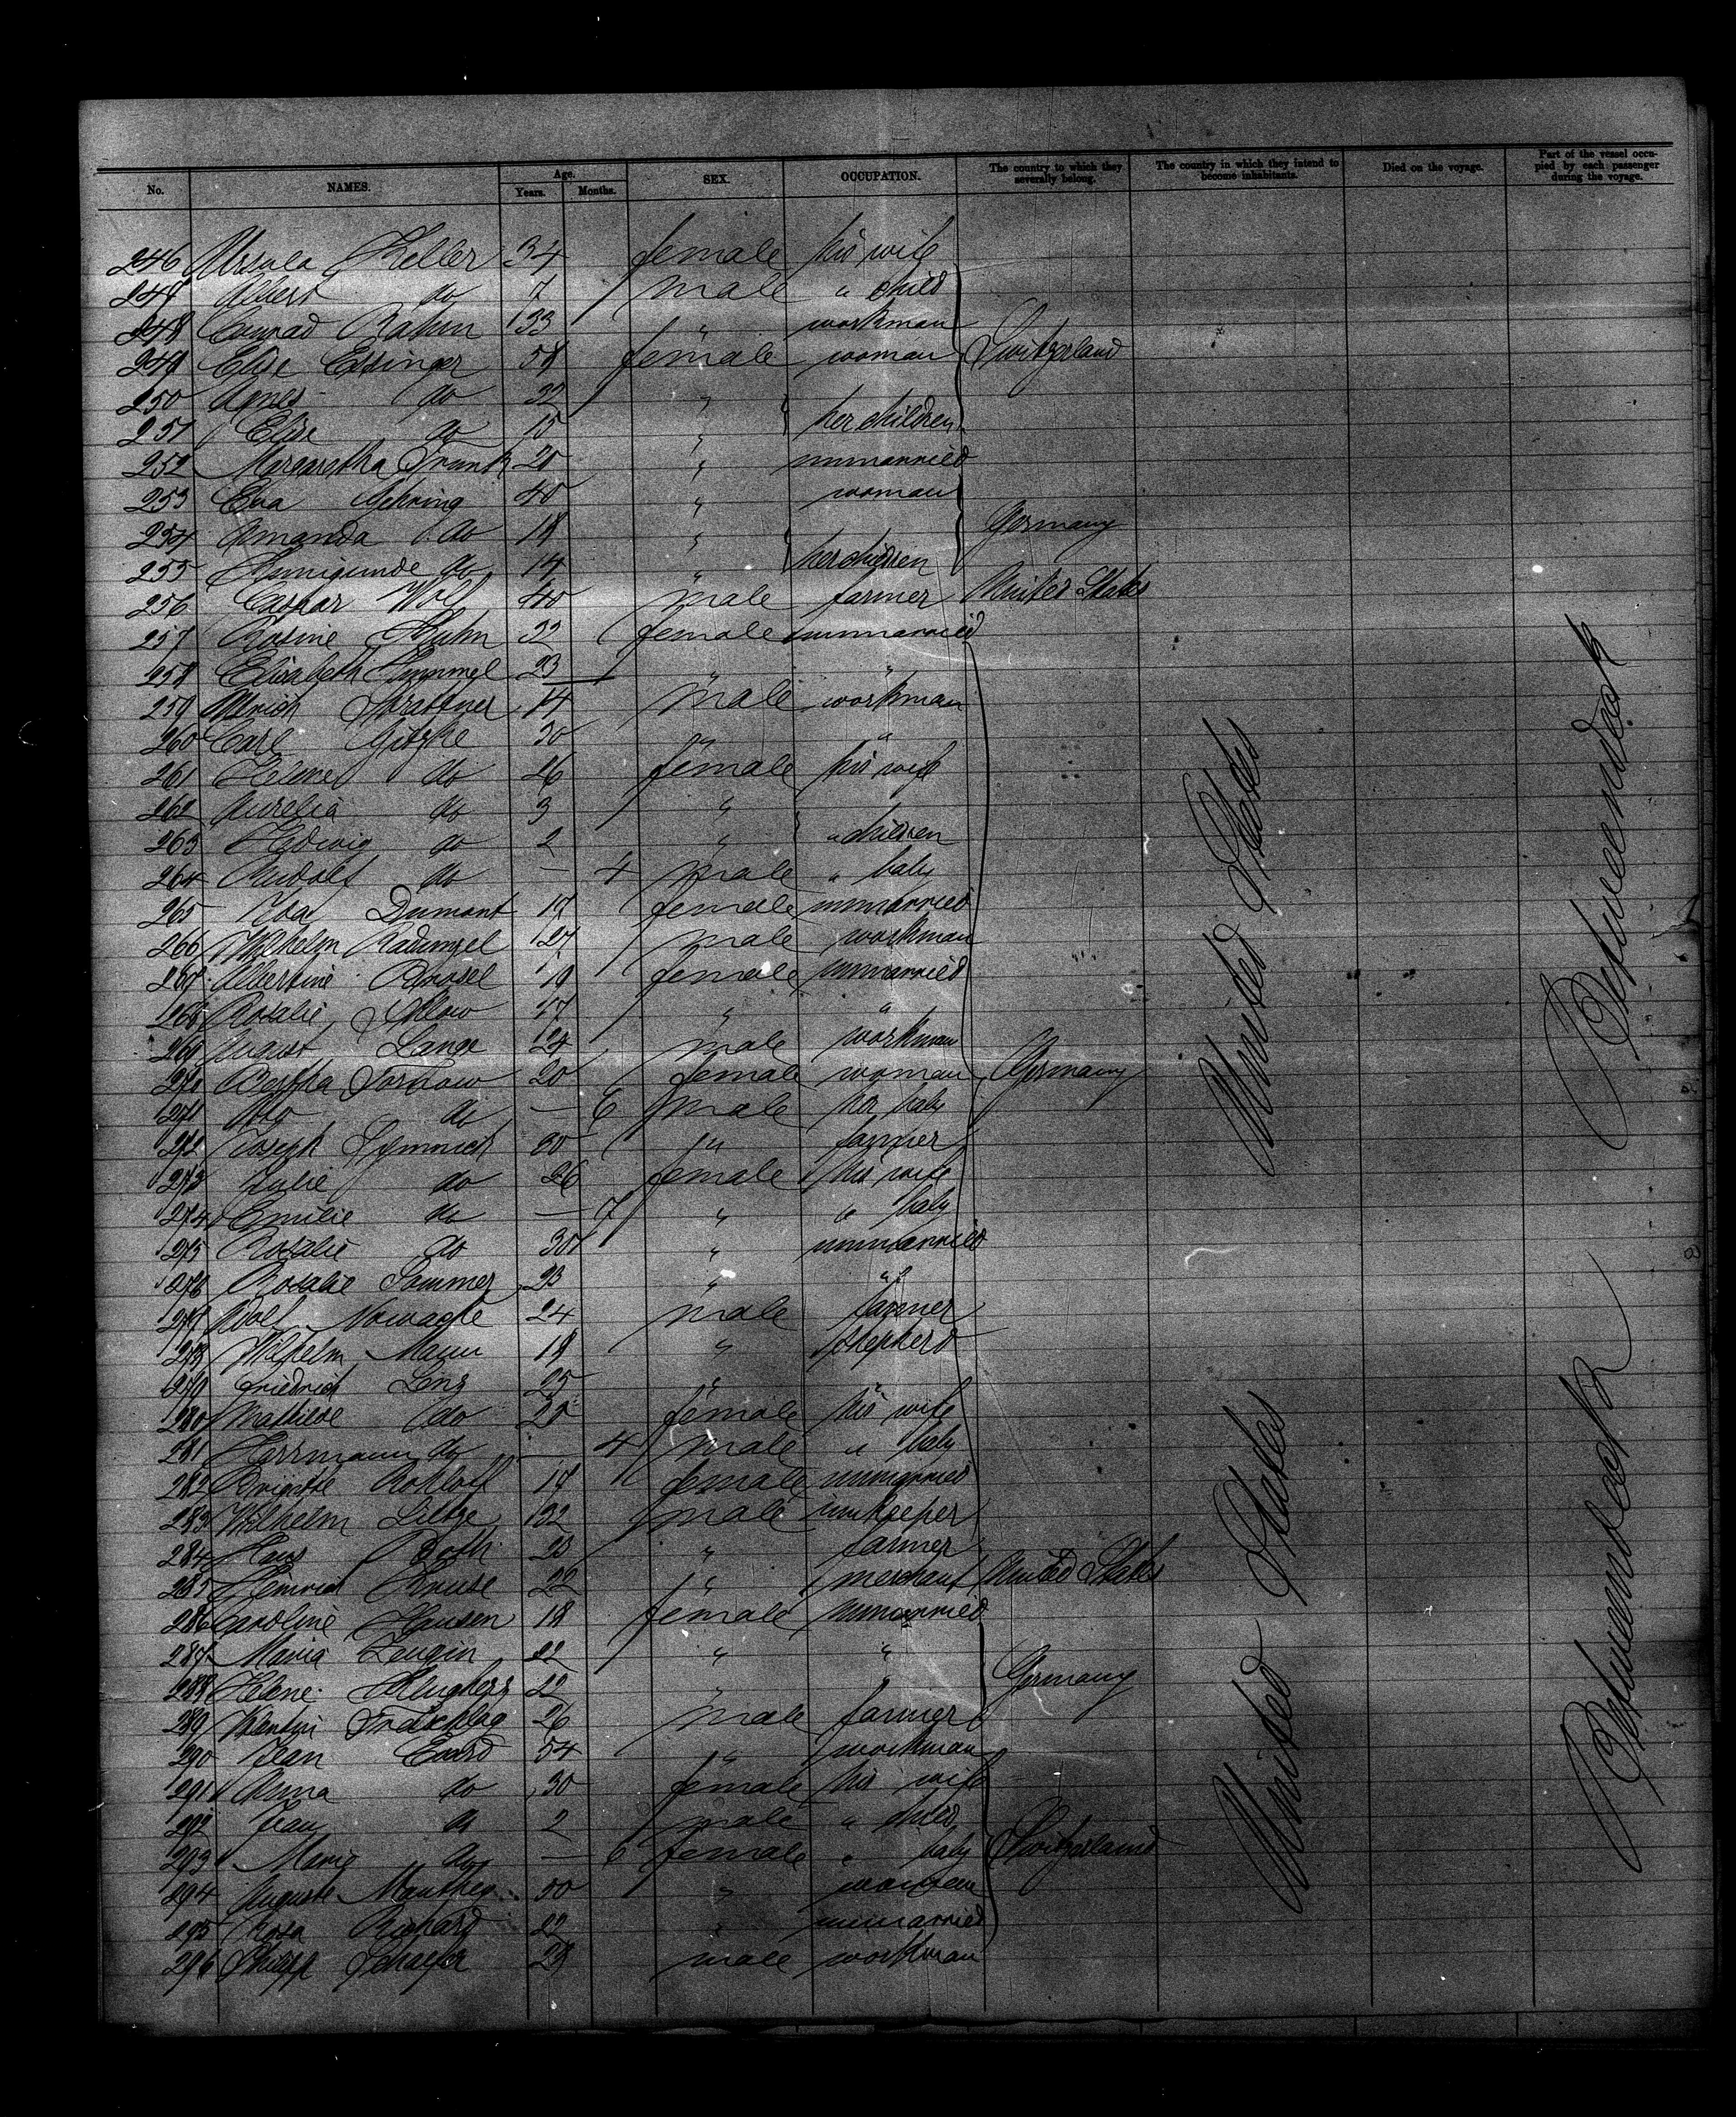 No. NAMES. Age. Years. Months. SEX. OCCUPATION. The country to which they severally belong. The country in which they intend to become inhabitants. Died on the voyage. Part of the vessel occupied by each passenger during the voyage.
246 Ursula Keller 34 female his wife
247 Albert do 7 male " child
248 Conrad Rahm 33 " workman
249 Elise Essinger 58 female woman Switzerland
250 Agnes do 22 "
251 Elise do 15 " her children
252 Margaretha Trunk 20 " unmarried
253 Eva Gehring 40 " woman
254 Amanda do 18 " Germany
255 Kunigunde do 14 " her children
256 Caspar Wolf 40 male farmer United States
257 Rosine Huhn 32 female unmarried
258 Elisabeth 23 " "
259 Ulrich 14 male workman
260 Carl Gitzke 30 " "
261 Helene do 26 female his wife
262 Aurelia do 3 "
263 Hedwig do 2 " " children
264 Rudolf do — 4 male " baby
265 Ida Dumont 17 female unmarried
266 Wilhelm Radunzel 27 male workman
267 Albertine 19 female unmarried
268 Rosalie 17 " "
269 August Lange 24 male workman
270 Bertha 20 female woman Germany
271 Otto do — 6 male her baby
272 Joseph 30 " farmer
273 Julie do 26 female his wife
274 Emilie do — 7 " " baby
275 Rosalie do 30 " unmarried
276 Rosalie Sommer 23 " "
277 24 male farmer
278 Wilhelm Mann 18 " shepherd
279 Friedrich Lenz 25 " "
280 Mathilde do 20 female his wife
281 Herrmann do — 4 male " baby
282 Brigitte Rohloff 17 female unmarried
283 Wilhelm 32 male innkeeper
284 Hans Both 20 " farmer
285 Heinrich Kruse 22 " merchant United States
286 Caroline Hansen 18 female unmarried
287 Maria Zeugin 22 " "
288 Helene 22 " " Germany
289 Valentin 26 male farmer
290 Jean 54 " workman
291 Anna do 30 female his wife
292 Jean do 2 male " child
293 Marie do — 6 female " baby Switzerland
294 Auguste Manthey 50 " woman
295 Rosa Richard 22 " unmarried
296 Philipp Schaefer 28 male workman
United States
United States
Betweendeck
Betweendeck